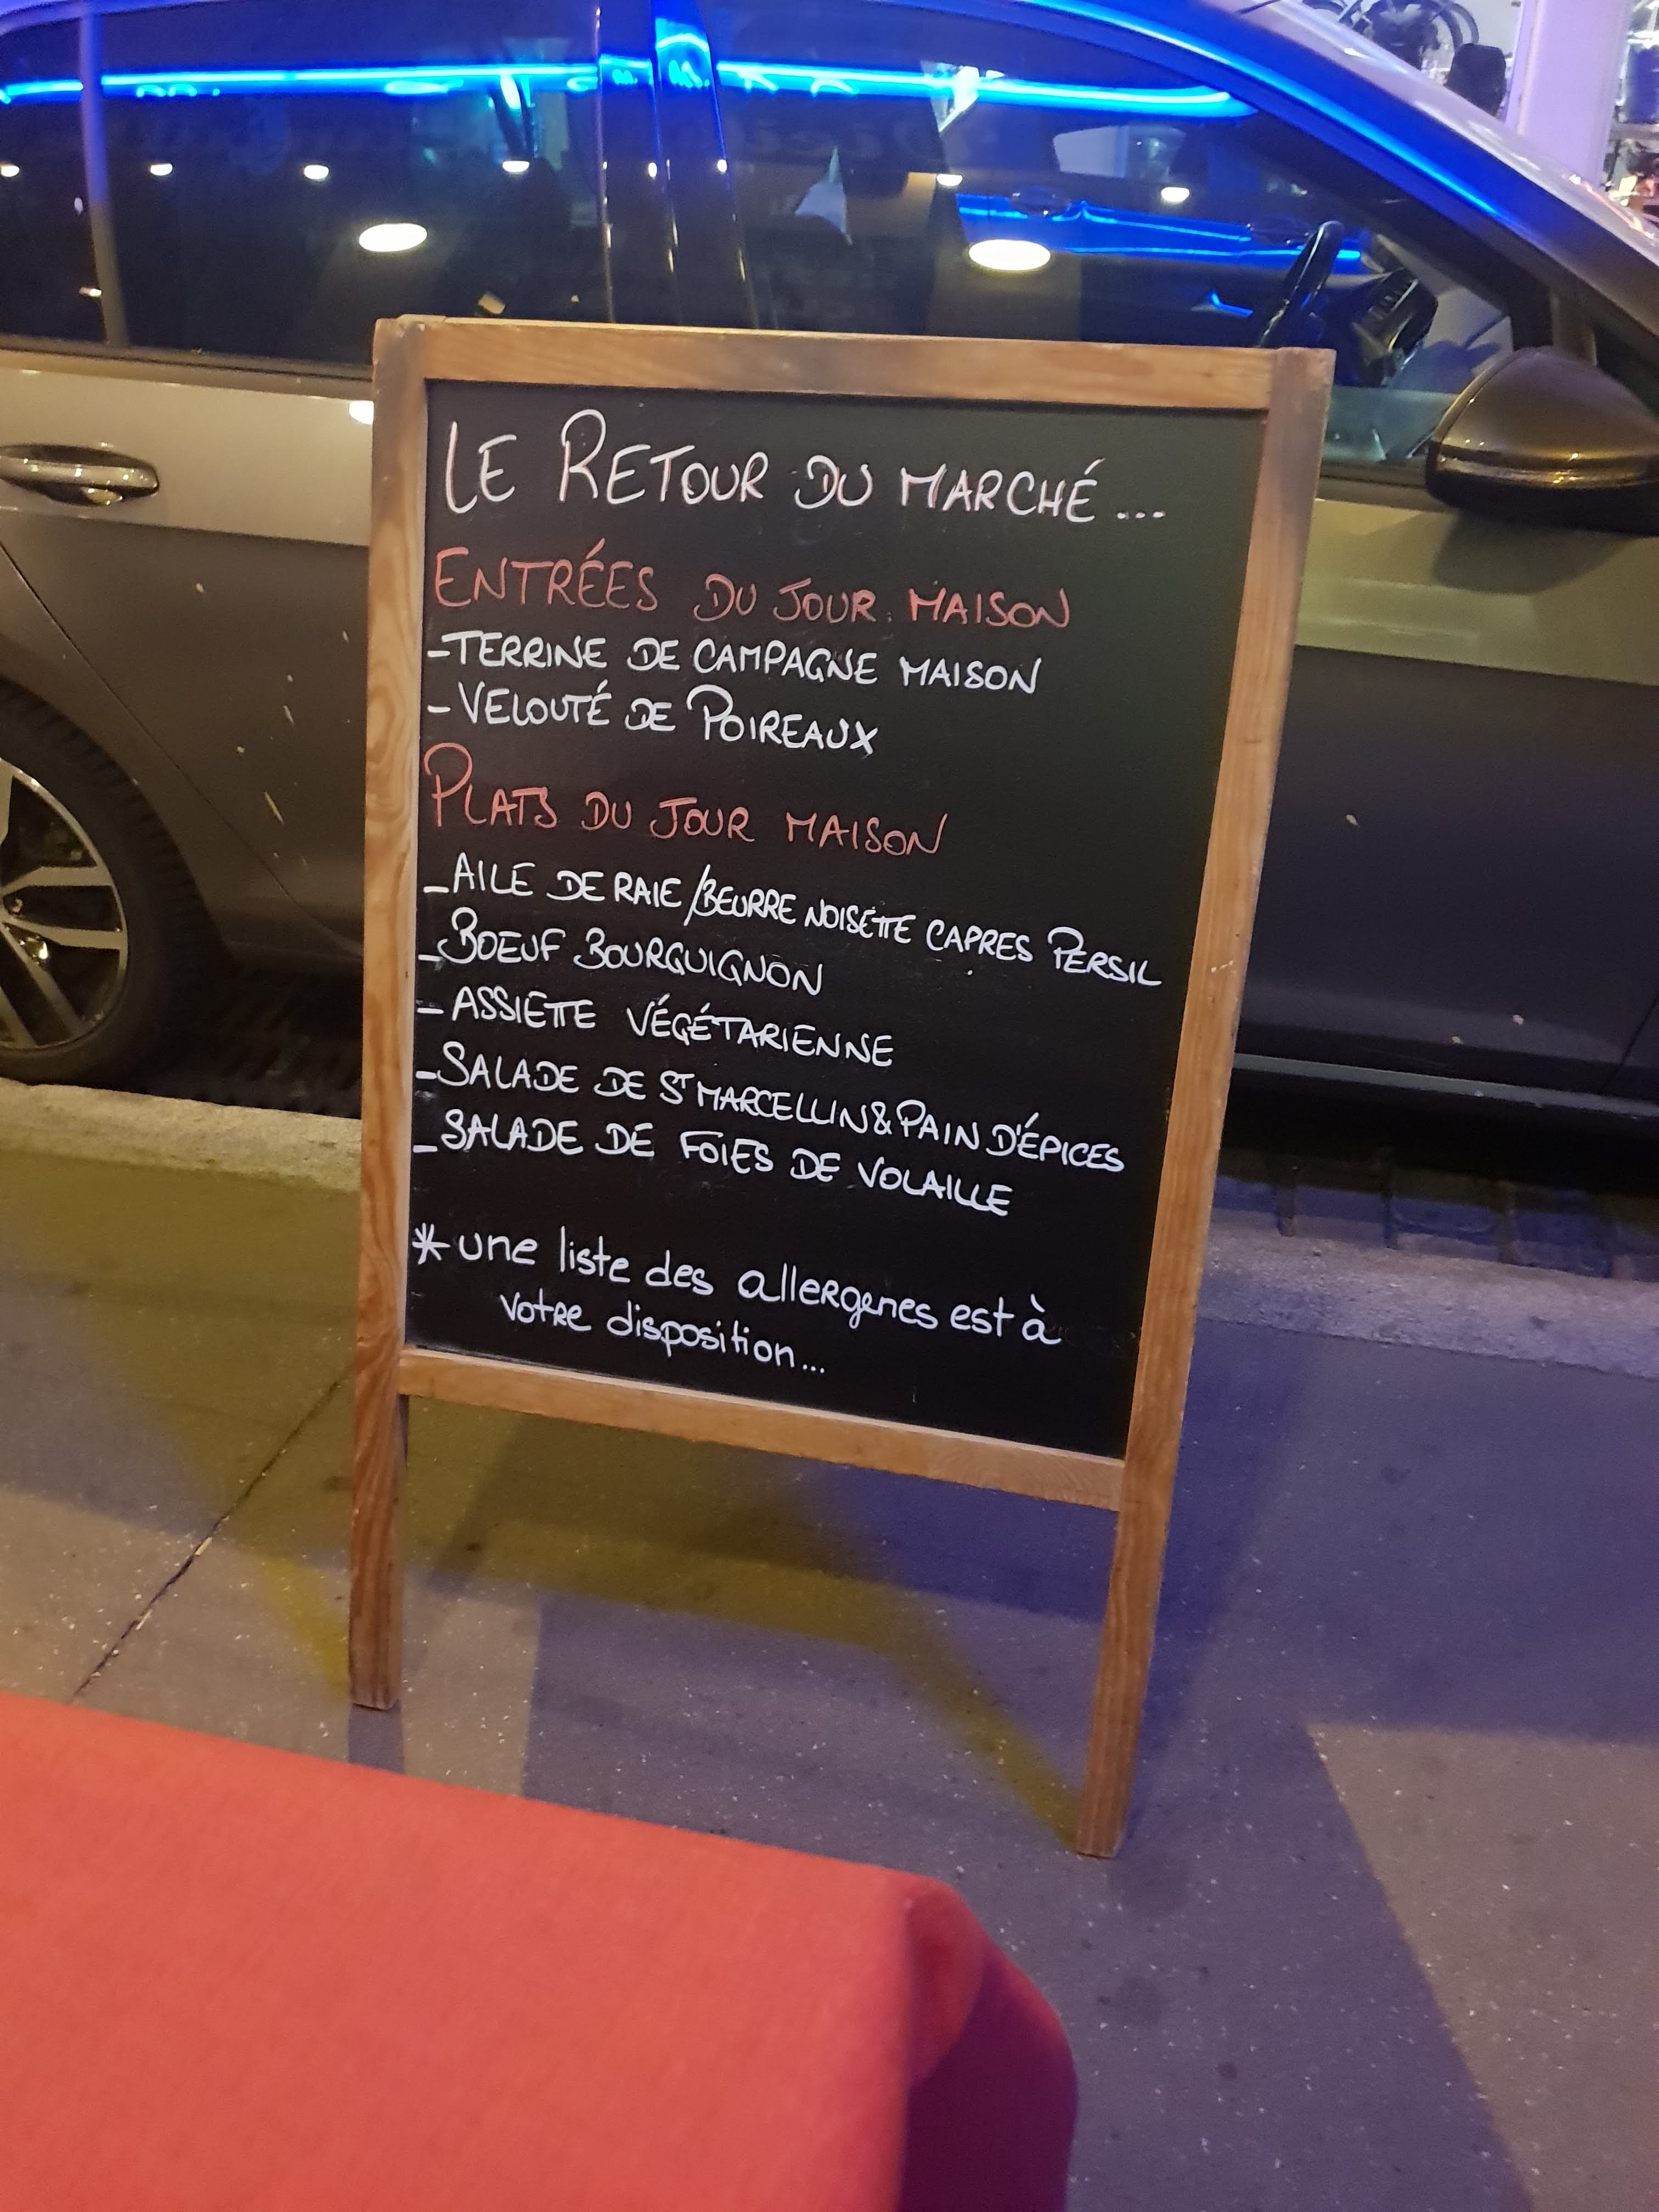 LE RETOUR DU MARCHÉ...
ENTRÉES DU JOUR MAISON
- TERRINE DE CAMPAGNE MAISON
- VELOUTÉ DE POIREAUX
PLATS DU JOUR MAISON
- AILE DE RAIE/BEURRE NOISETTE CAPRES PERSIL
- BOEUF BOURGUIGNON
- ASSIETTE VÉGÉTARIENNE
- SALADE DE ST MARCELLIN & PAIN D'ÉPICES
- SALADE DE FOIES DE VOLAILLE
* une liste des allergenes est à
votre disposition...